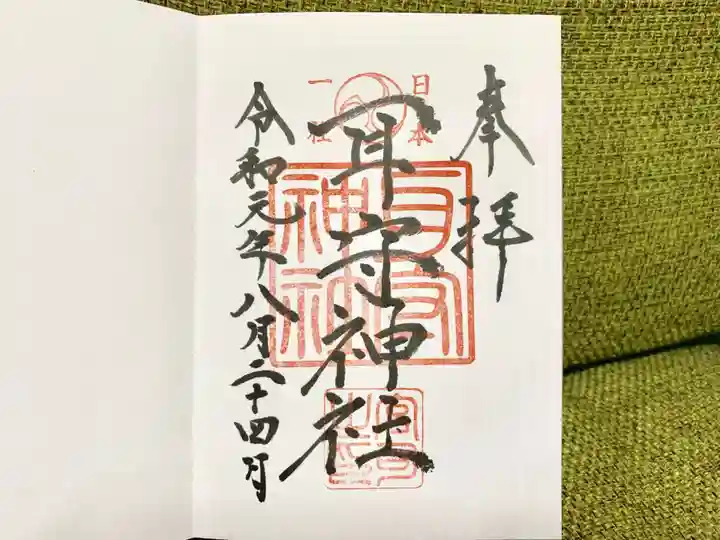 奉拝
日本
一社
耳守神社
令和元年八月二十四日